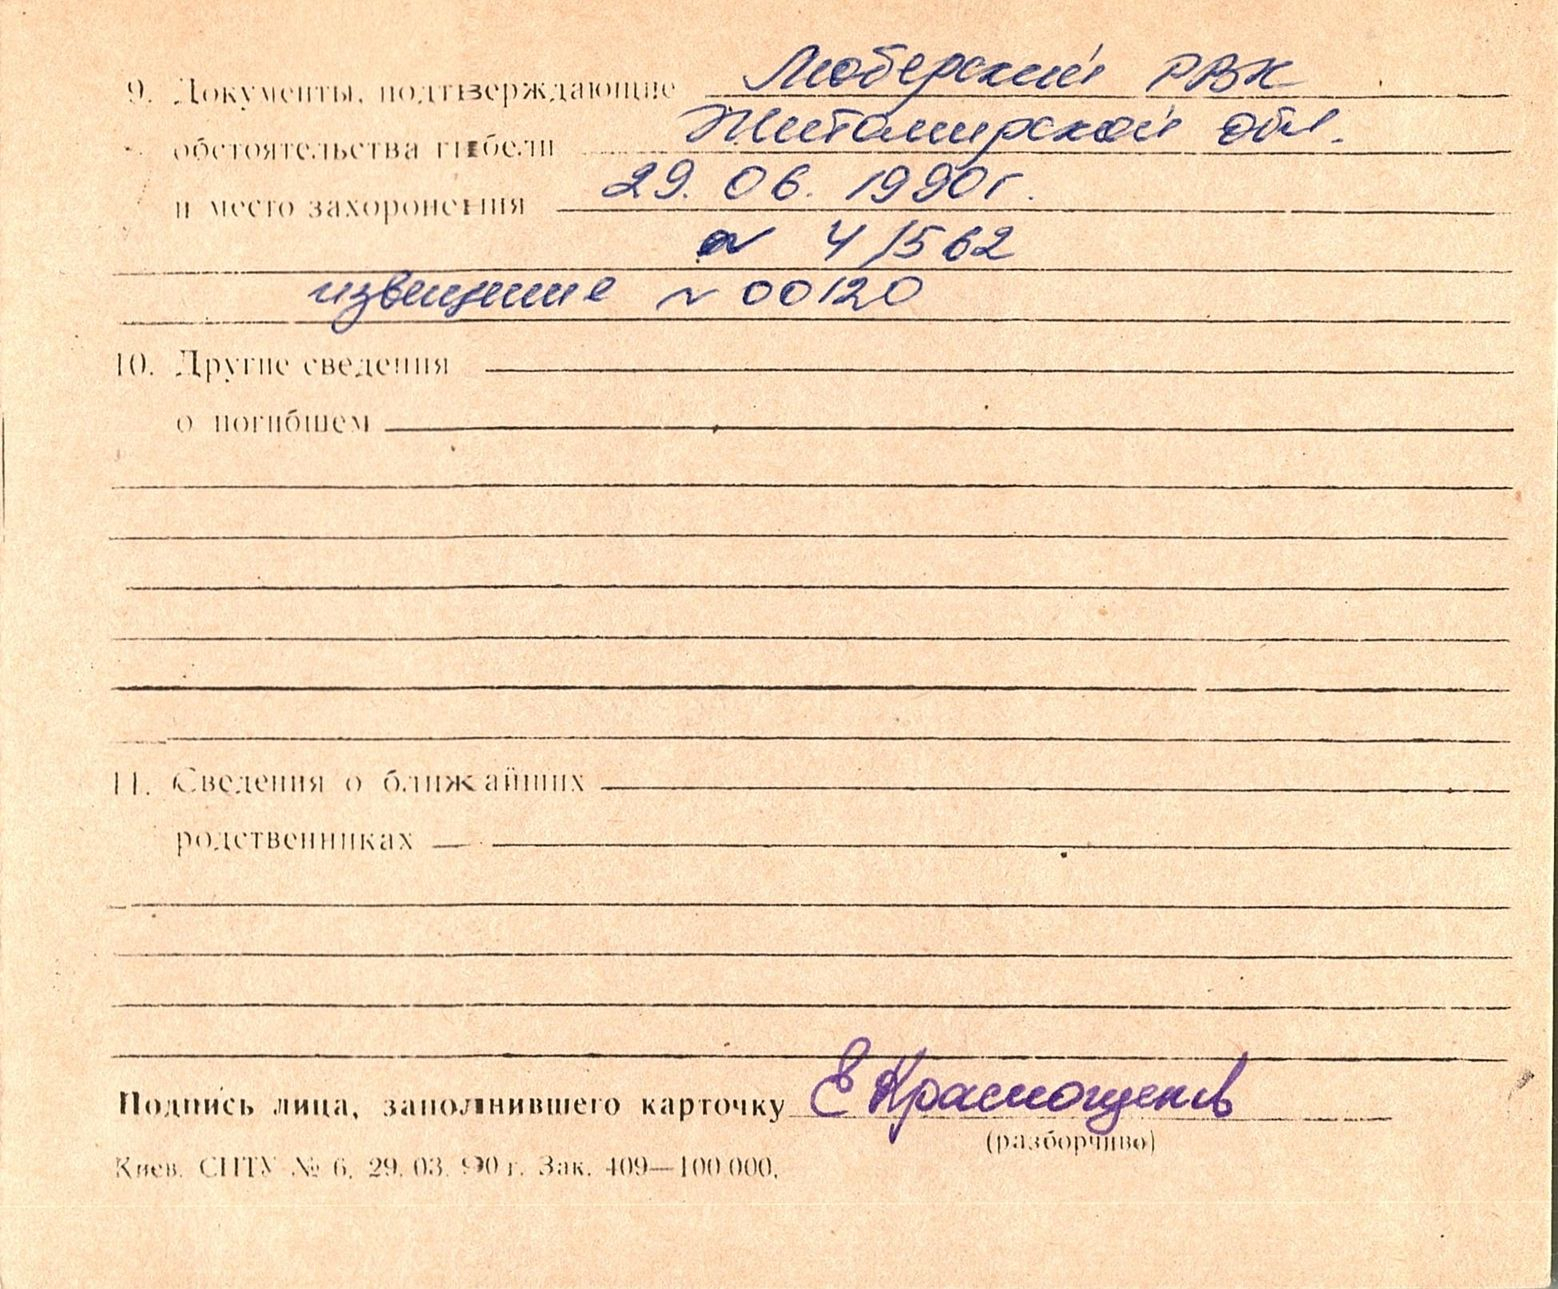 9. Документы, подтверждающие Люберский РВК
обстоятельства гибели Житомирской обл.
и место захоронения 29.06.1990г.
№ 4/562
извещение № 00120
10. Другие сведения
о погибшем
11. Сведения о ближайших
родственниках
Подпись лица, заполнившего карточку Е Краснощеков
(разборчиво)
Киев. СПТУ № 6. 29. 03. 90 г. Зак. 409—100 000.